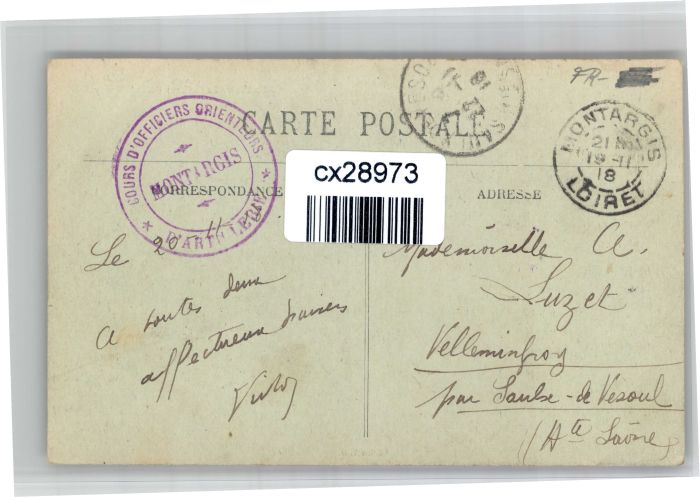 FR-
CARTE POSTALE
COURS D'OFFICIERS ORIENTEURS
MONTARGIS
★ D'ARTILLERIE ★
MONTARGIS
21
19-11
18
LOIRET
cx28973
CORRESPONDANCE
ADRESSE
Le 20-11
A toutes deux
affectueux baisers
Mademoiselle A.
Luzet
Velleminfroy
par Saulx-de Vesoul
(Hte Saône)